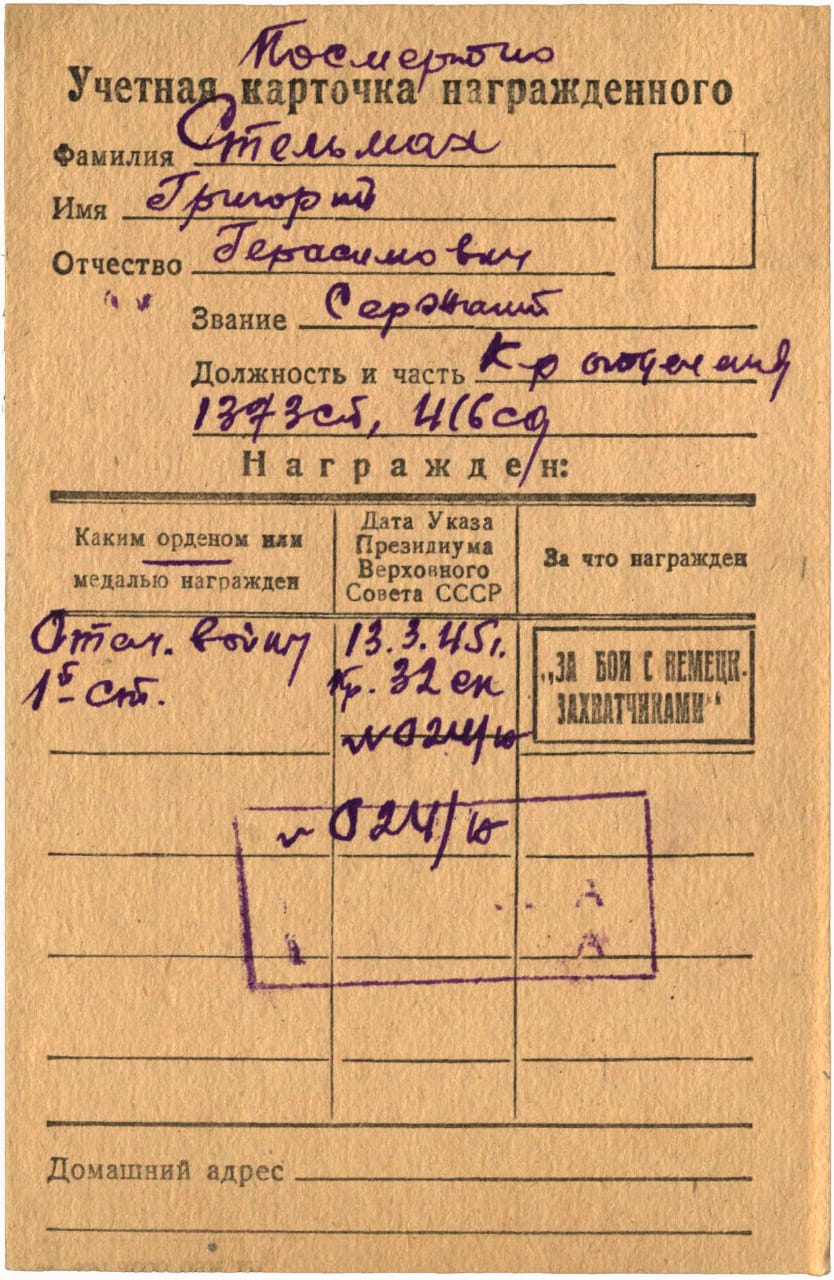 Посмертно
Учетная карточка награжденного
Фамилия Стельмах
Имя Григорий
Отчество Герасимович
Звание Сержант
Должность и часть К-р отделения
1373 сп, 416 сд
Награжден:
Каким орденом или
медалью награжден
Дата Указа
Президиума
Верховного
Совета СССР
За что награжден
Отеч. войны
1й ст.
13.3.45г.
Пр. 32 ск
N 024/ю
„ЗА БОИ С НЕМЕЦК.
ЗАХВАТЧИКАМИ“
N 024/ю
Домашний адрес